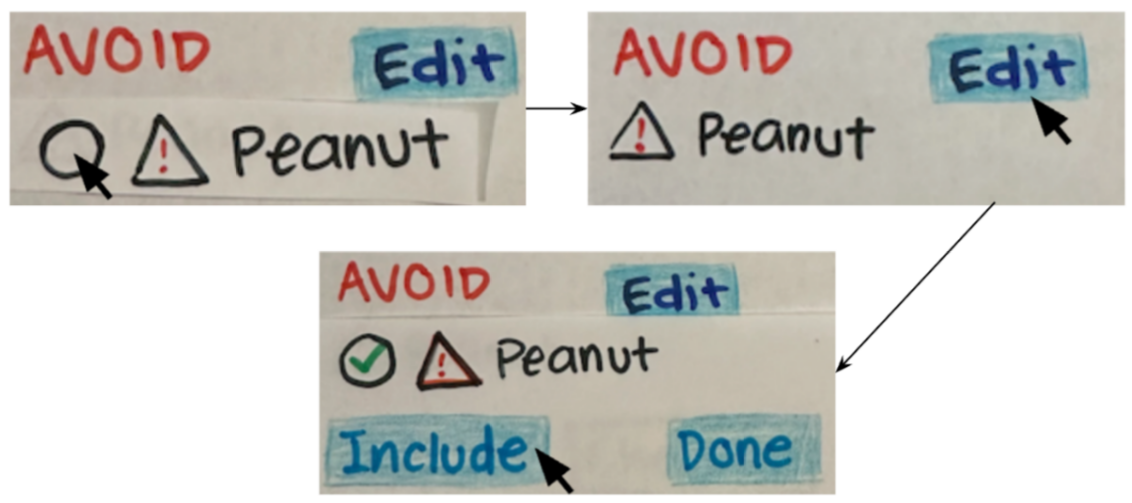 AVOID Edit
! Peanut
AVOID Edit
! Peanut
AVOID Edit
! Peanut
Include Done